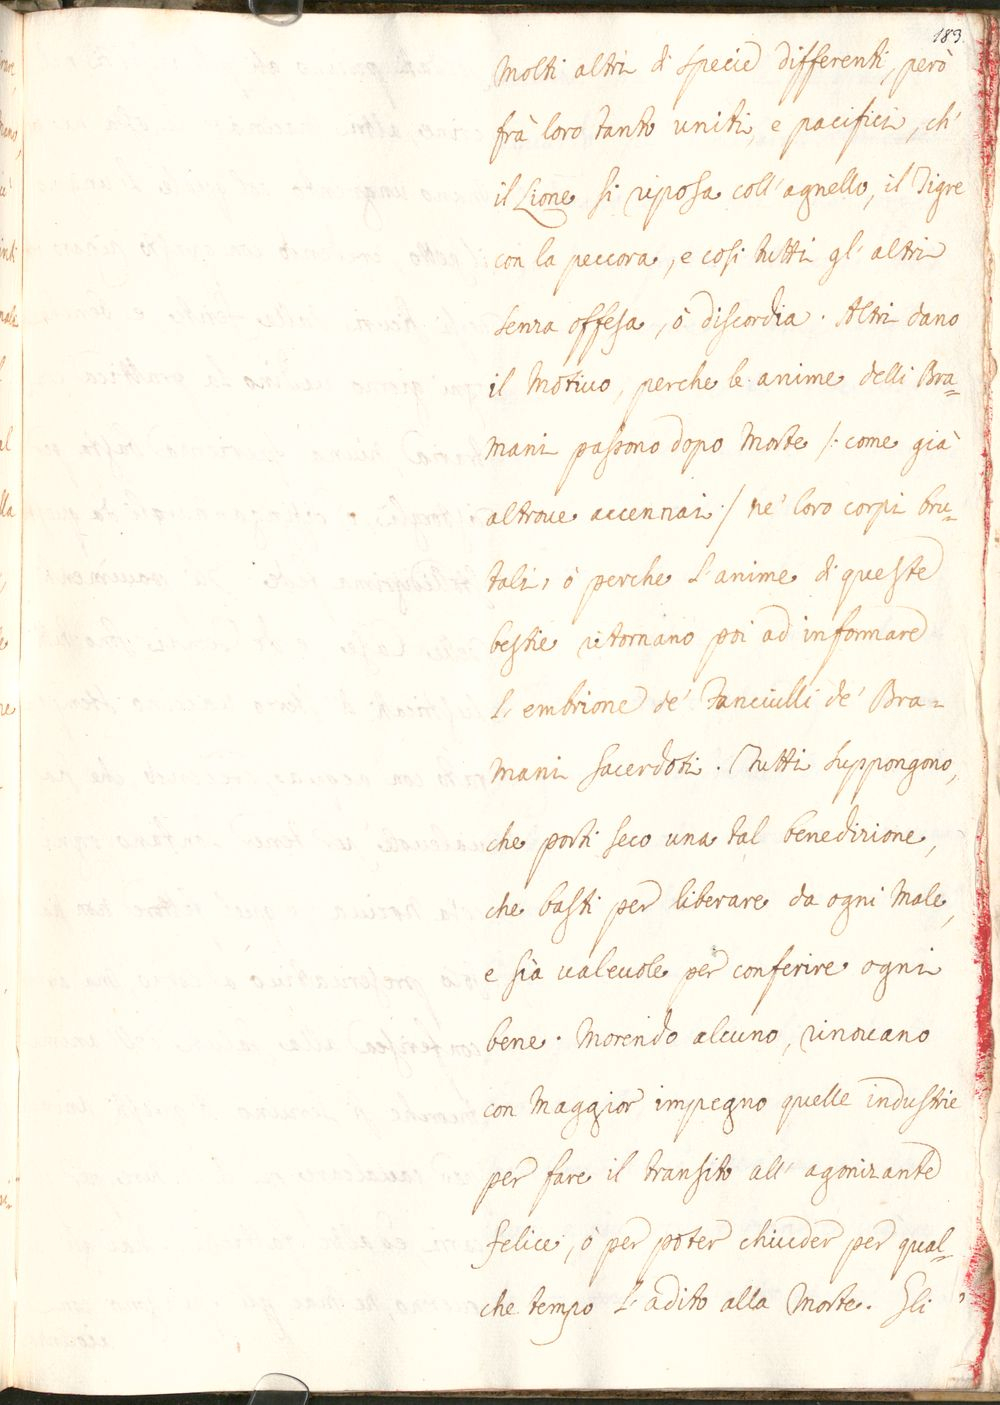 183.
Molti altri di specie differenti, però
frà loro tanto uniti, e pacifici, ch'
il Lione si riposa coll'agnello, il Tigre
con la peccora, e così tutti gl'altri
senza offesa, ò discordia. Altri dano
il Motivo, perche le anime delli Bra=
mani passono dopo Morte /: come già
altrove accennai :/ ne' loro corpi bru=
tali, ò perche l'anime di queste
bestie ritornano poi ad informare
l'embrione de' Fanciulli de' Bra=
mani sacerdoti. Tutti suppongono,
che porti seco una tal benedizione,
che basti per liberare da ogni Male,
e sia valevole per conferire ogni
bene. Morendo alcuno, rinovano
con Maggior impegno quelle industrie
per fare il transito all'agonizante
felice, ò per poter chiuder per qual=
che tempo l'adito alla Morte. Gli